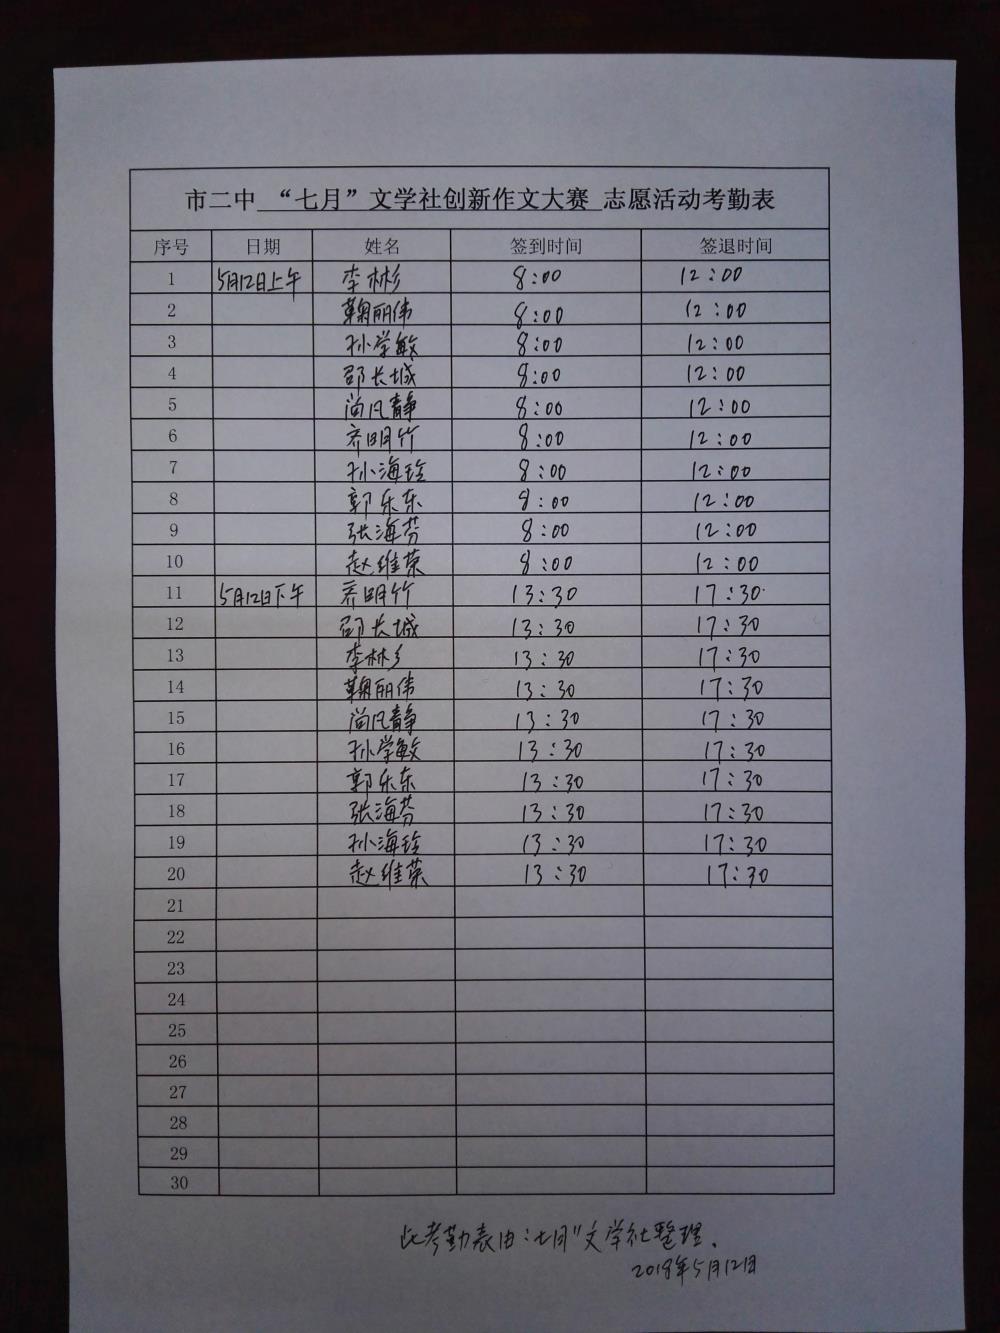 市二中 “七月”文学社创新作文大赛 志愿活动考勤表
序号 日期 姓名 签到时间 签退时间
1 5月12日上午 李林彬 8:00 12:00
2 鞠丽伟 8:00 12:00
3 孙学敏 8:00 12:00
4 邵长城 8:00 12:00
5 尚凡静 8:00 12:00
6 乔明竹 8:00 12:00
7 孙海玲 8:00 12:00
8 郭乐东 8:00 12:00
9 张海芬 8:00 12:00
10 赵维荣 8:00 12:00
11 5月12日下午 乔明竹 13:30 17:30
12 邵长城 13:30 17:30
13 李林 13:30 17:30
14 鞠丽伟 13:30 17:30
15 尚凡静 13:30 17:30
16 孙学敏 13:30 17:30
17 郭乐东 13:30 17:30
18 张海芬 13:30 17:30
19 孙海玲 13:30 17:30
20 赵维荣 13:30 17:30
21
22
23
24
25
26
27
28
29
30
此考勤表由“七月”文学社整理、
2018年5月12日